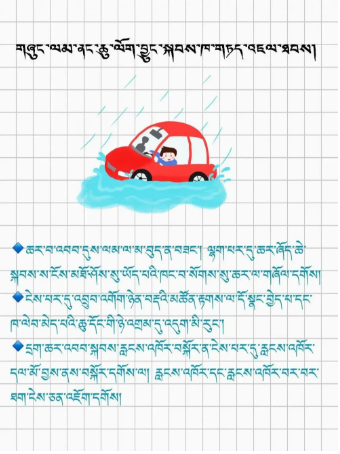 གཞུང་ལམ་ནང་ཆུ་ལོག་བྱུང་སྐབས་ཁ་གཏད་འཇལ་ཐབས།
ཆར་བ་འབབ་དུས་ལམ་ལ་མ་བུད་ན་བཟང་། ལྷག་པར་དུ་ཆར་ཞོད་ཆེ་
སྐབས་ས་ངོས་མཐོ་ཤོས་སུ་ཡོད་པའི་ཁང་བ་སོགས་སུ་ཆར་ལ་གཞོལ་དགོས།
ངེས་པར་དུ་འབྲུབ་འགོག་ཉེན་བརྡའི་མཚོན་རྟགས་ལ་དོ་སྣང་བྱེད་པ་དང་
ཁ་ལེབ་མེད་པའི་ཆུ་དོང་གི་ཉེ་འགྲམ་དུ་འདུག་མི་རུང་།
དྲག་ཆར་འབབ་སྐབས་རླངས་འཁོར་བསྐོར་ན་ངེས་པར་དུ་རླངས་འཁོར་
དལ་མོ་བྱས་ནས་བསྐོར་དགོས་ལ། རླངས་འཁོར་དང་རླངས་འཁོར་བར་བར་
ཐག་ངེས་ཅན་འཇོག་དགོས།